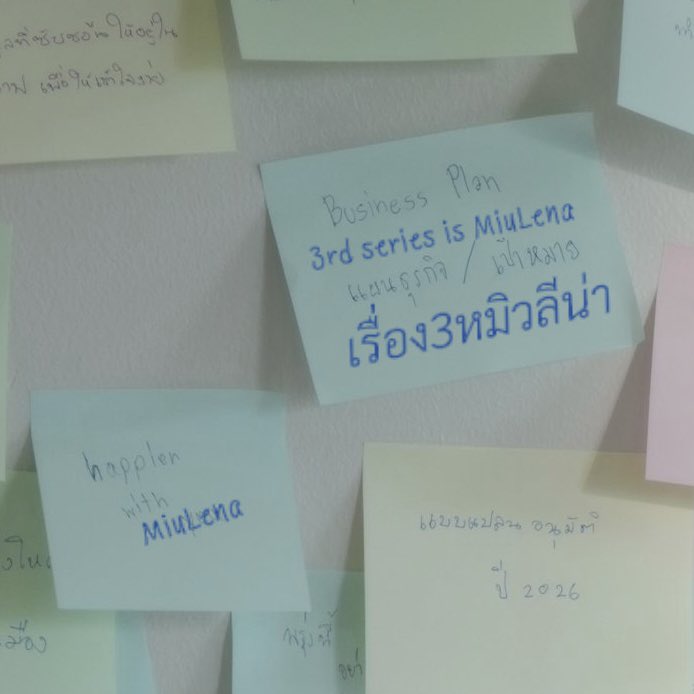 ให้อยู่ใน
เพื่อให้เข้าใจง่าย
Business Plan
3rd series is MiuLena
แผนธุรกิจ / เป้าหมาย
เรื่อง3หมิวลีน่า
happier
with
MiuLena
แบบแปลน อนุมัติ
ปี 2026
เมือง
พรุ่งนี้
อย่า